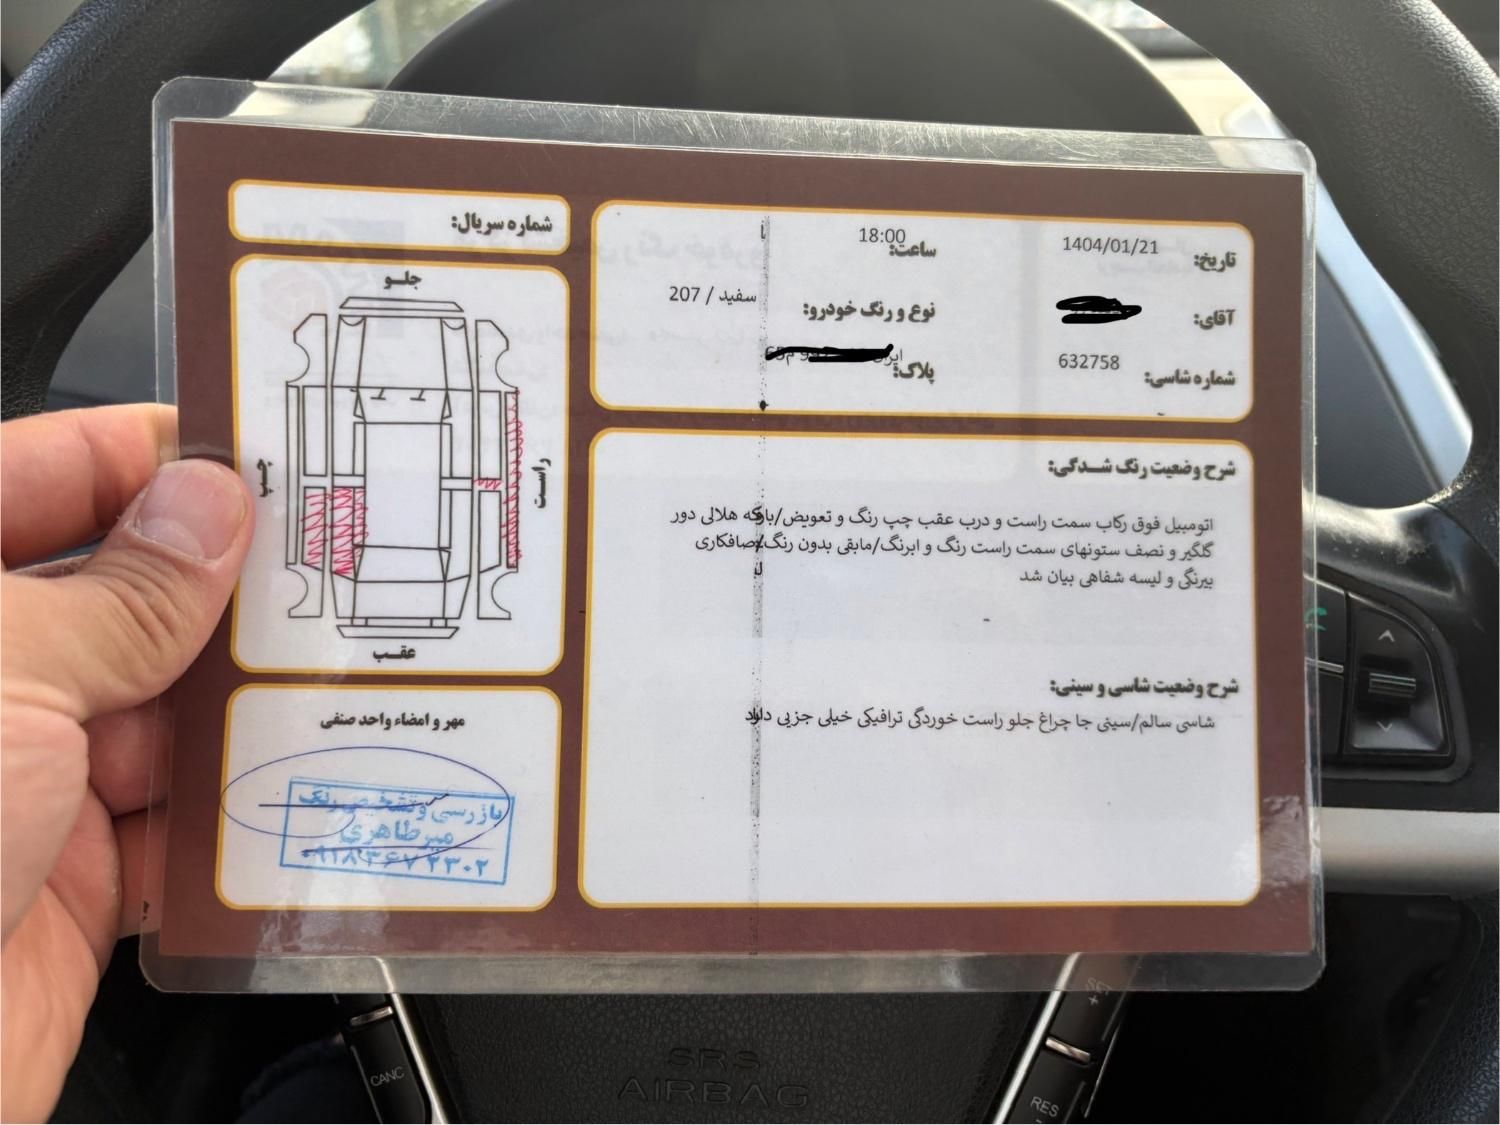 تاریخ: 1404/01/21
ساعت: 18:00
آقای:
نوع و رنگ خودرو: سفید / 207
شماره شاسی: 632758
پلاک:
شرح وضعیت رنگ شدگی:
اتومبیل فوق رکاب سمت راست و درب عقب چپ رنگ و تعویض/باوکه هلالی دور
گلگیر و نصف ستونهای سمت راست رنگ و ابرنگ/مابقی بدون رنگ/صافکاری
بیرنگی و لیسه شفاهی بیان شد
شرح وضعیت شاسی و سینی:
شاسی سالم/سینی جا چراغ جلو راست خوردگی ترافیکی خیلی جزیی دارد
شماره سریال:
جلو
چپ
راست
عقب
مهر و امضاء واحد صنفی
بازرسی و تشخیص رنگ
میرطاهری
۰۹۱۸۳۶۷۲۳۰۲
SRS
AIRBAG
CANC
RES
+